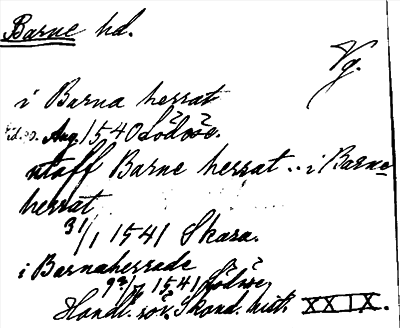 Barne hd.
Vg.
i Barna herrat
Aug. 1540 Lödöse.
utaff Barne herrat .. i Barne
herrat
31/1 1541 Skara.
i Barnaherrade
1541 Lödöse,
Handl. rör. Skand. hist. XXIX.